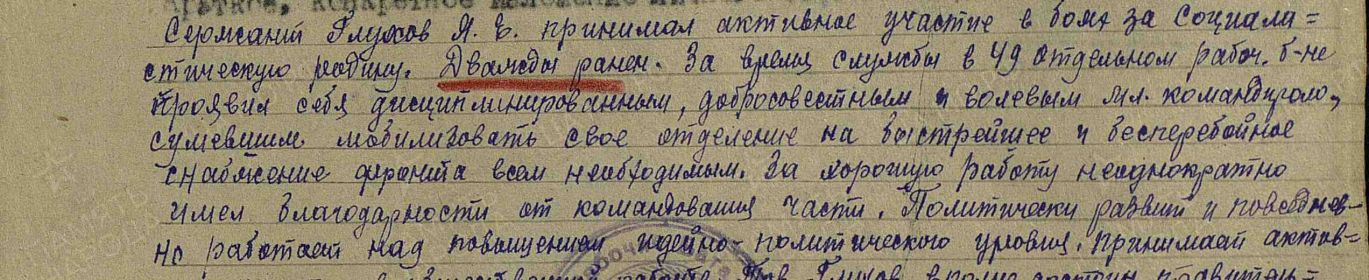 Краткое, конкретное изложение личного
Сержант Глухов Я. Е. принимал активное участие в боях за Социали=
стическую родину. Дважды ранен. За время службы в 49 отдельном рабоч. б-не
проявил себя дисциплинированным, добросовестным и волевым мл. командиром,
сумевшим мобилизовать свое отделение на быстрейшее и бесперебойное
снабжение фронта всем необходимым. За хорошую работу неоднократно
имел благодарности от командования части. Политически развит и повседнев-
но работает над повышением идейно-политического уровня. Принимает актив-
работе Тов. Глухов вполне достоин